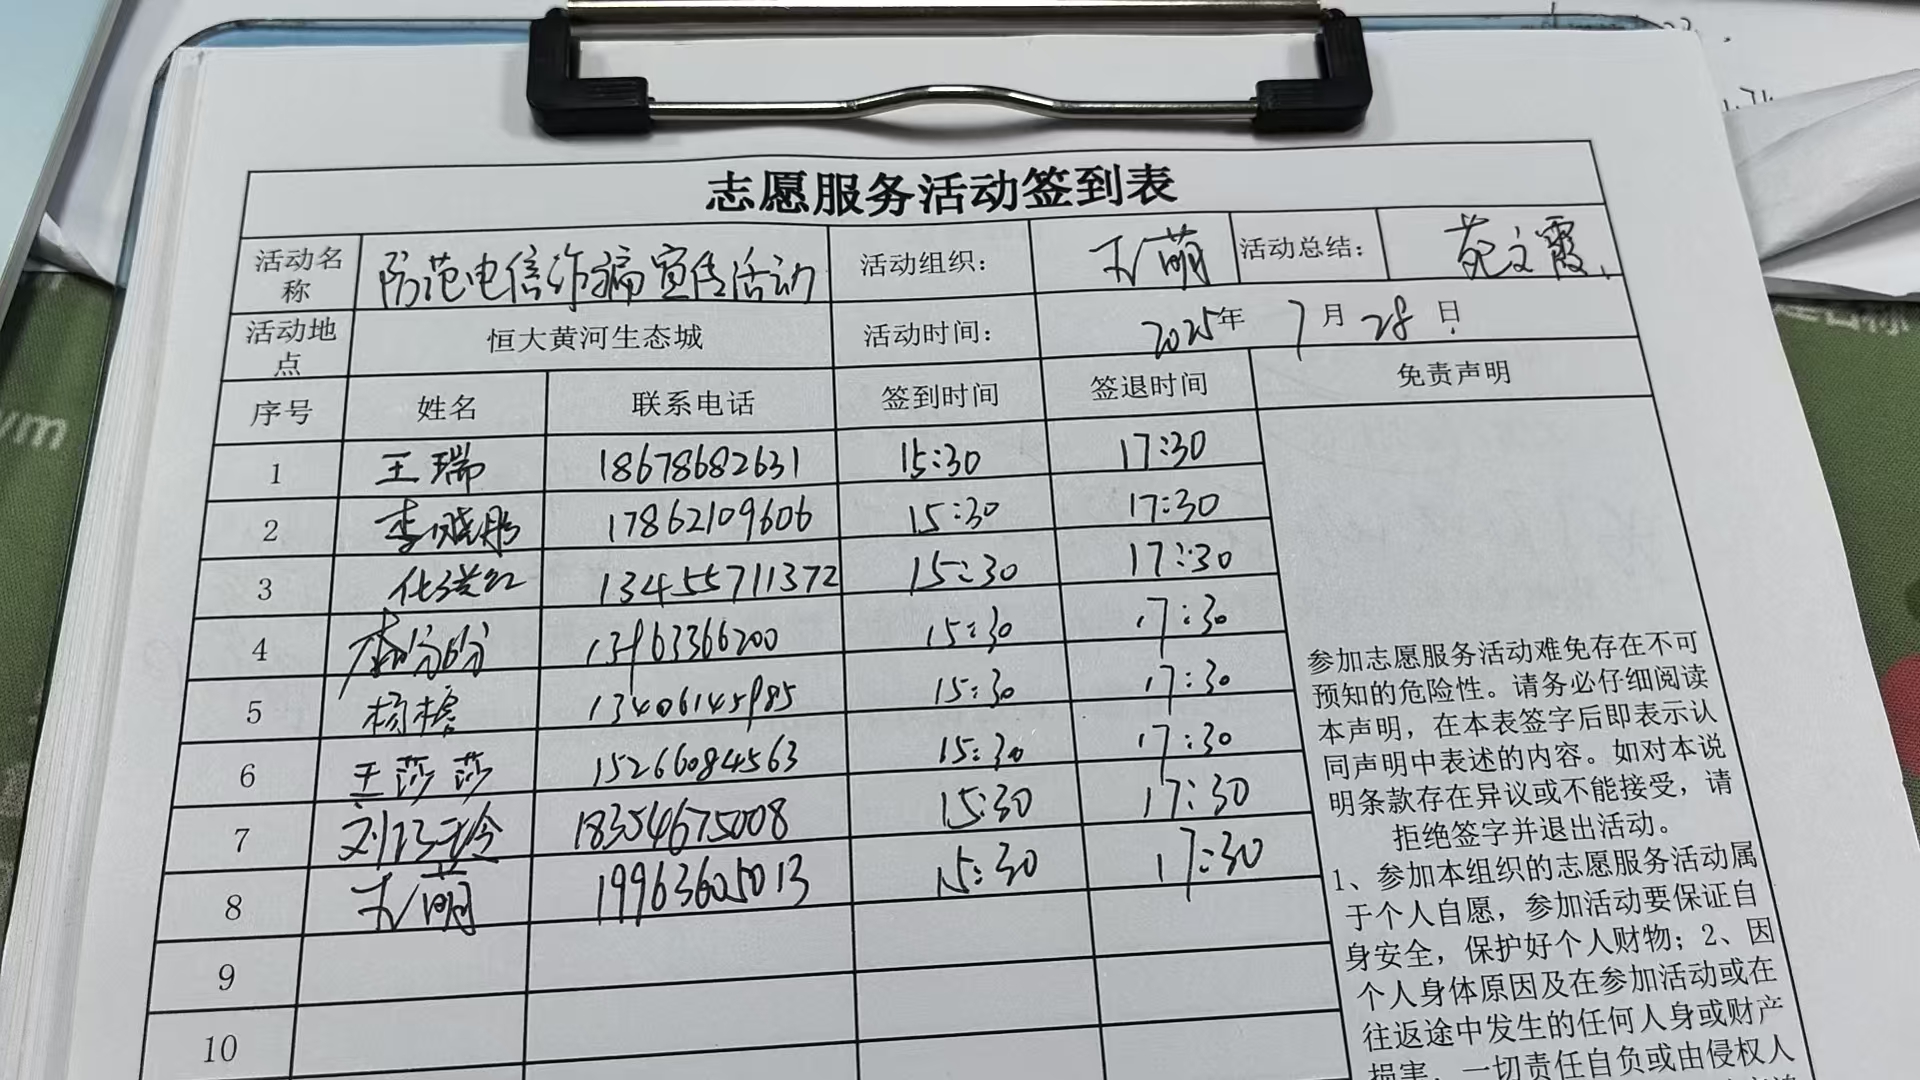 志愿服务活动签到表
活动名称 防范电信诈骗宣传活动 活动组织： 王萌 活动总结： 苑文霞
活动地点 恒大黄河生态城 活动时间： 2025年 7月 28日
序号 姓名 联系电话 签到时间 签退时间 免责声明
1 王瑞 18678682631 15:30 17:30
2 李晓彤 17862109606 15:30 17:30
3 13455711372 15:30 17:30
4 13963366200 15:30 17:30
5 杨 13406145985 15:30 17:30
6 王莎莎 15266084563 15:30 17:30
7 刘 18354675008 15:30 17:30
8 王萌 19963605013 15:30 17:30
9
10
参加志愿服务活动难免存在不可
预知的危险性。请务必仔细阅读
本声明，在本表签字后即表示认
同声明中表述的内容。如对本说
明条款存在异议或不能接受，请
拒绝签字并退出活动。
1、参加本组织的志愿服务活动属
于个人自愿，参加活动要保证自
身安全，保护好个人财物；2、因
个人身体原因及在参加活动或在
往返途中发生的任何人身或财产
损害，一切责任自负或由侵权人